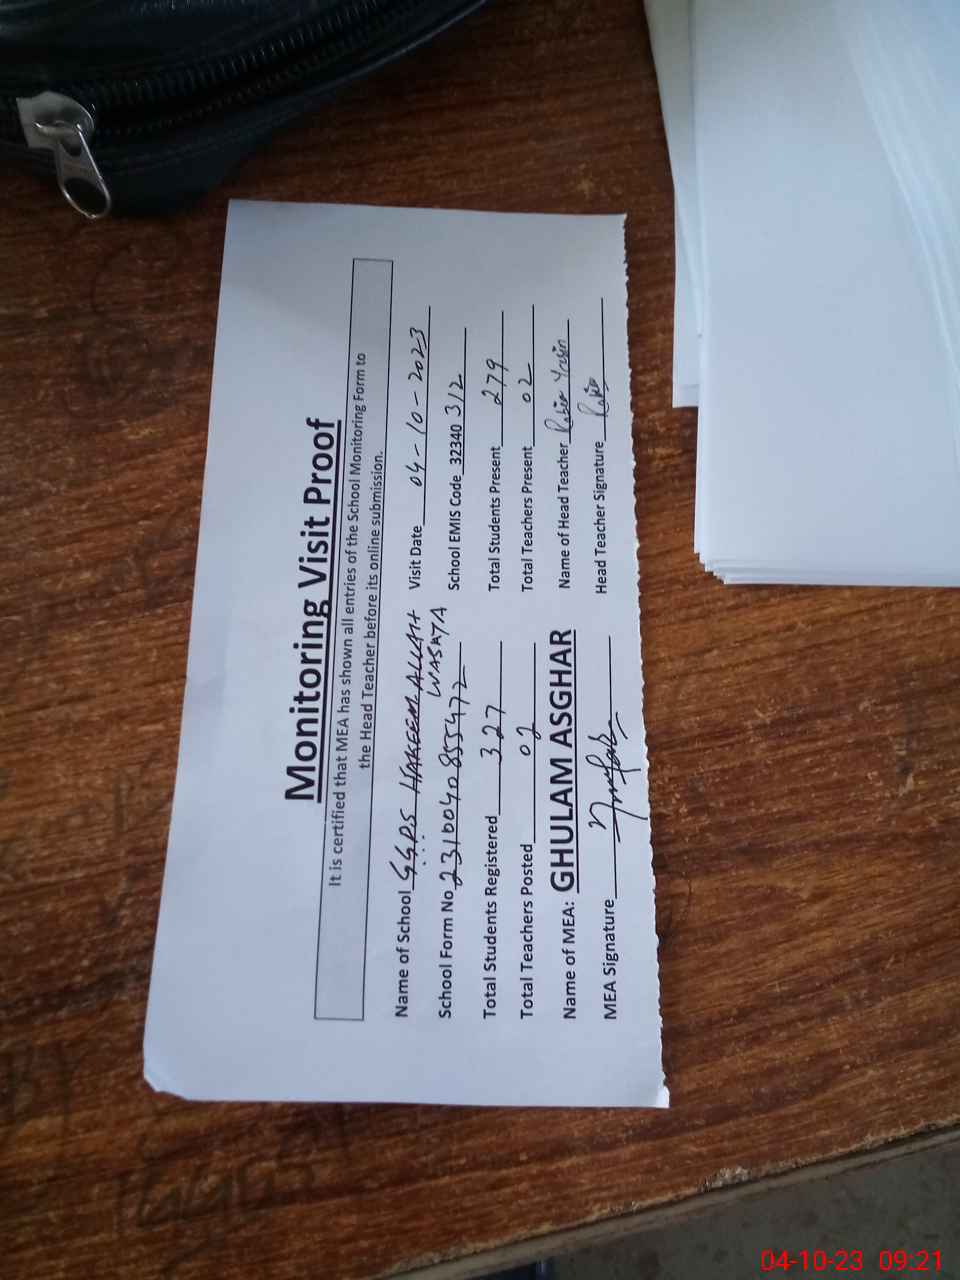 Monitoring Visit Proof
It is certified that MEA has shown all entries of the School Monitoring Form to
the Head Teacher before its online submission.
Name of School GGPS HAKEEM ALLAH WASAYA Visit Date 04-10-2023
School Form No 2310040855472 School EMIS Code 32340 312
Total Students Registered 327 Total Students Present 279
Total Teachers Posted 02 Total Teachers Present 02
Name of MEA: GHULAM ASGHAR Name of Head Teacher Rabia Yasin
MEA Signature Head Teacher Signature Rabia
04-10-23 09:21